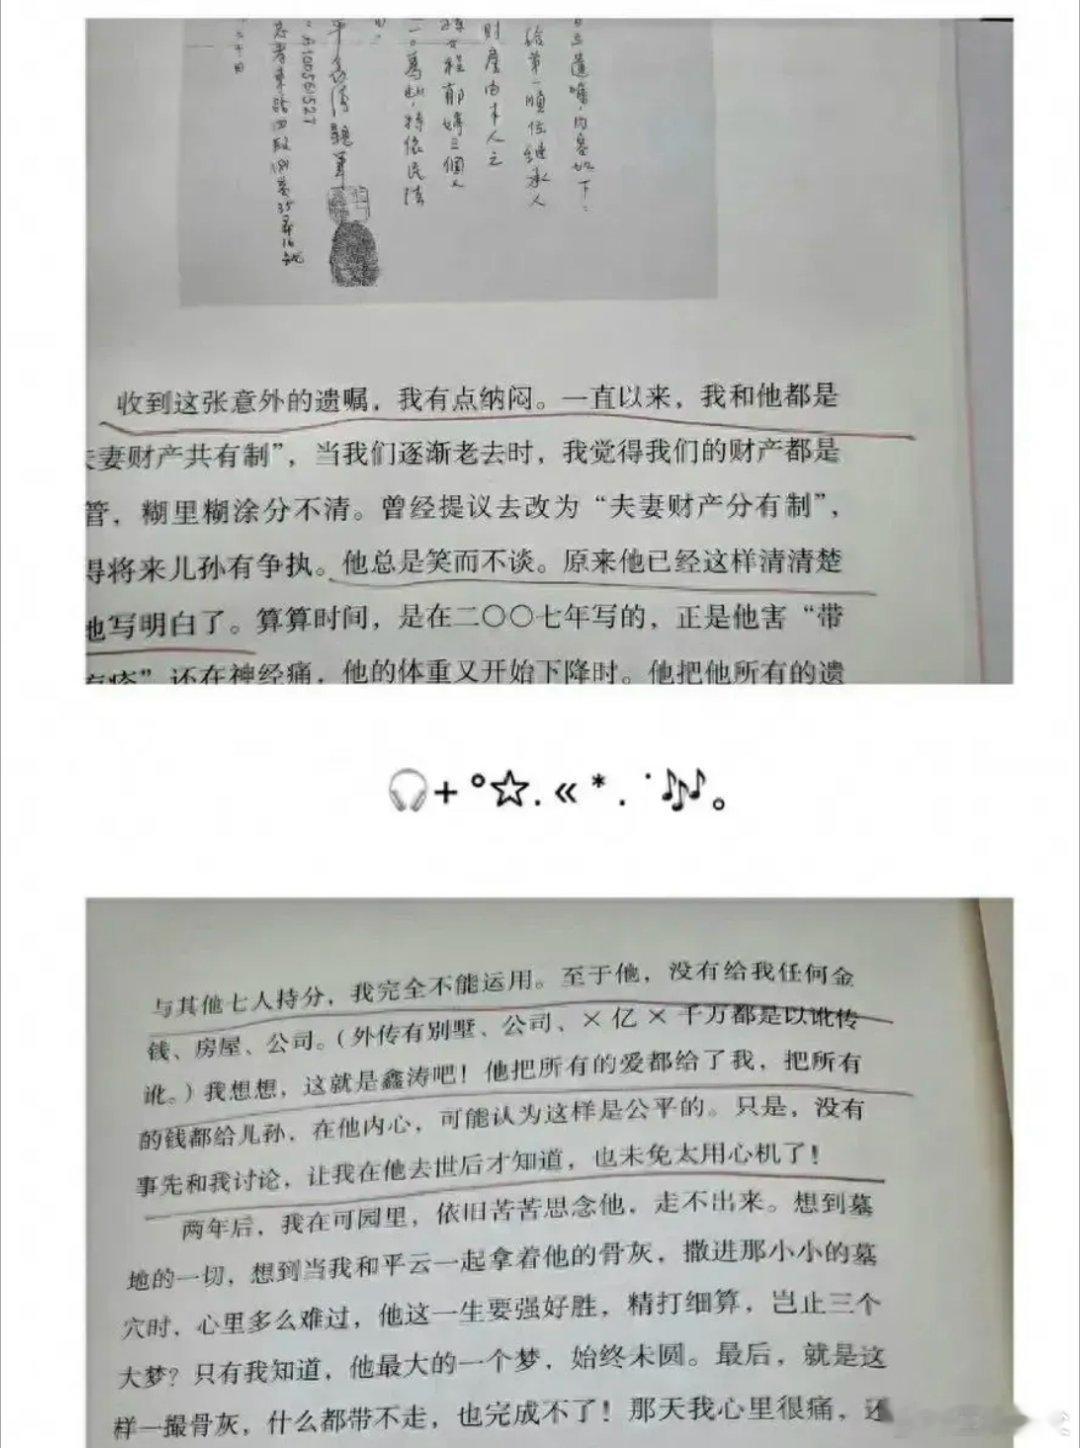 日立遺囑，內容如下：
給第一順位繼承人
財產由本人之
程郁婷三個人
特依民法
A100561527
收到这张意外的遗嘱，我有点纳闷。一直以来，我和他都是
夫妻财产共有制”，当我们逐渐老去时，我觉得我们的财产都是
管，糊里糊涂分不清。曾经提议去改为“夫妻财产分有制”，
得将来儿孙有争执。他总是笑而不谈。原来他已经这样清清楚
地写明白了。算算时间，是在二〇〇七年写的，正是他害“带
还在神经痛，他的体重又开始下降时。他把他所有的遗
🎧+ °☆. « * . ˙🎶。
与其他七人持分，我完全不能运用。至于他，没有给我任何金
钱、房屋、公司。（外传有别墅、公司、×亿×千万都是以讹传
讹。）我想想，这就是鑫涛吧！他把所有的爱都给了我，把所有
的钱都给儿孙，在他内心，可能认为这样是公平的。只是，没有
事先和我讨论，让我在他去世后才知道，也未免太用心机了！
两年后，我在可园里，依旧苦苦思念他，走不出来。想到墓
地的一切，想到当我和平云一起拿着他的骨灰，撒进那小小的墓
穴时，心里多么难过，他这一生要强好胜，精打细算，岂止三个
大梦？只有我知道，他最大的一个梦，始终未圆。最后，就是这
样一撮骨灰，什么都带不走，也完成不了！那天我心里很痛，还